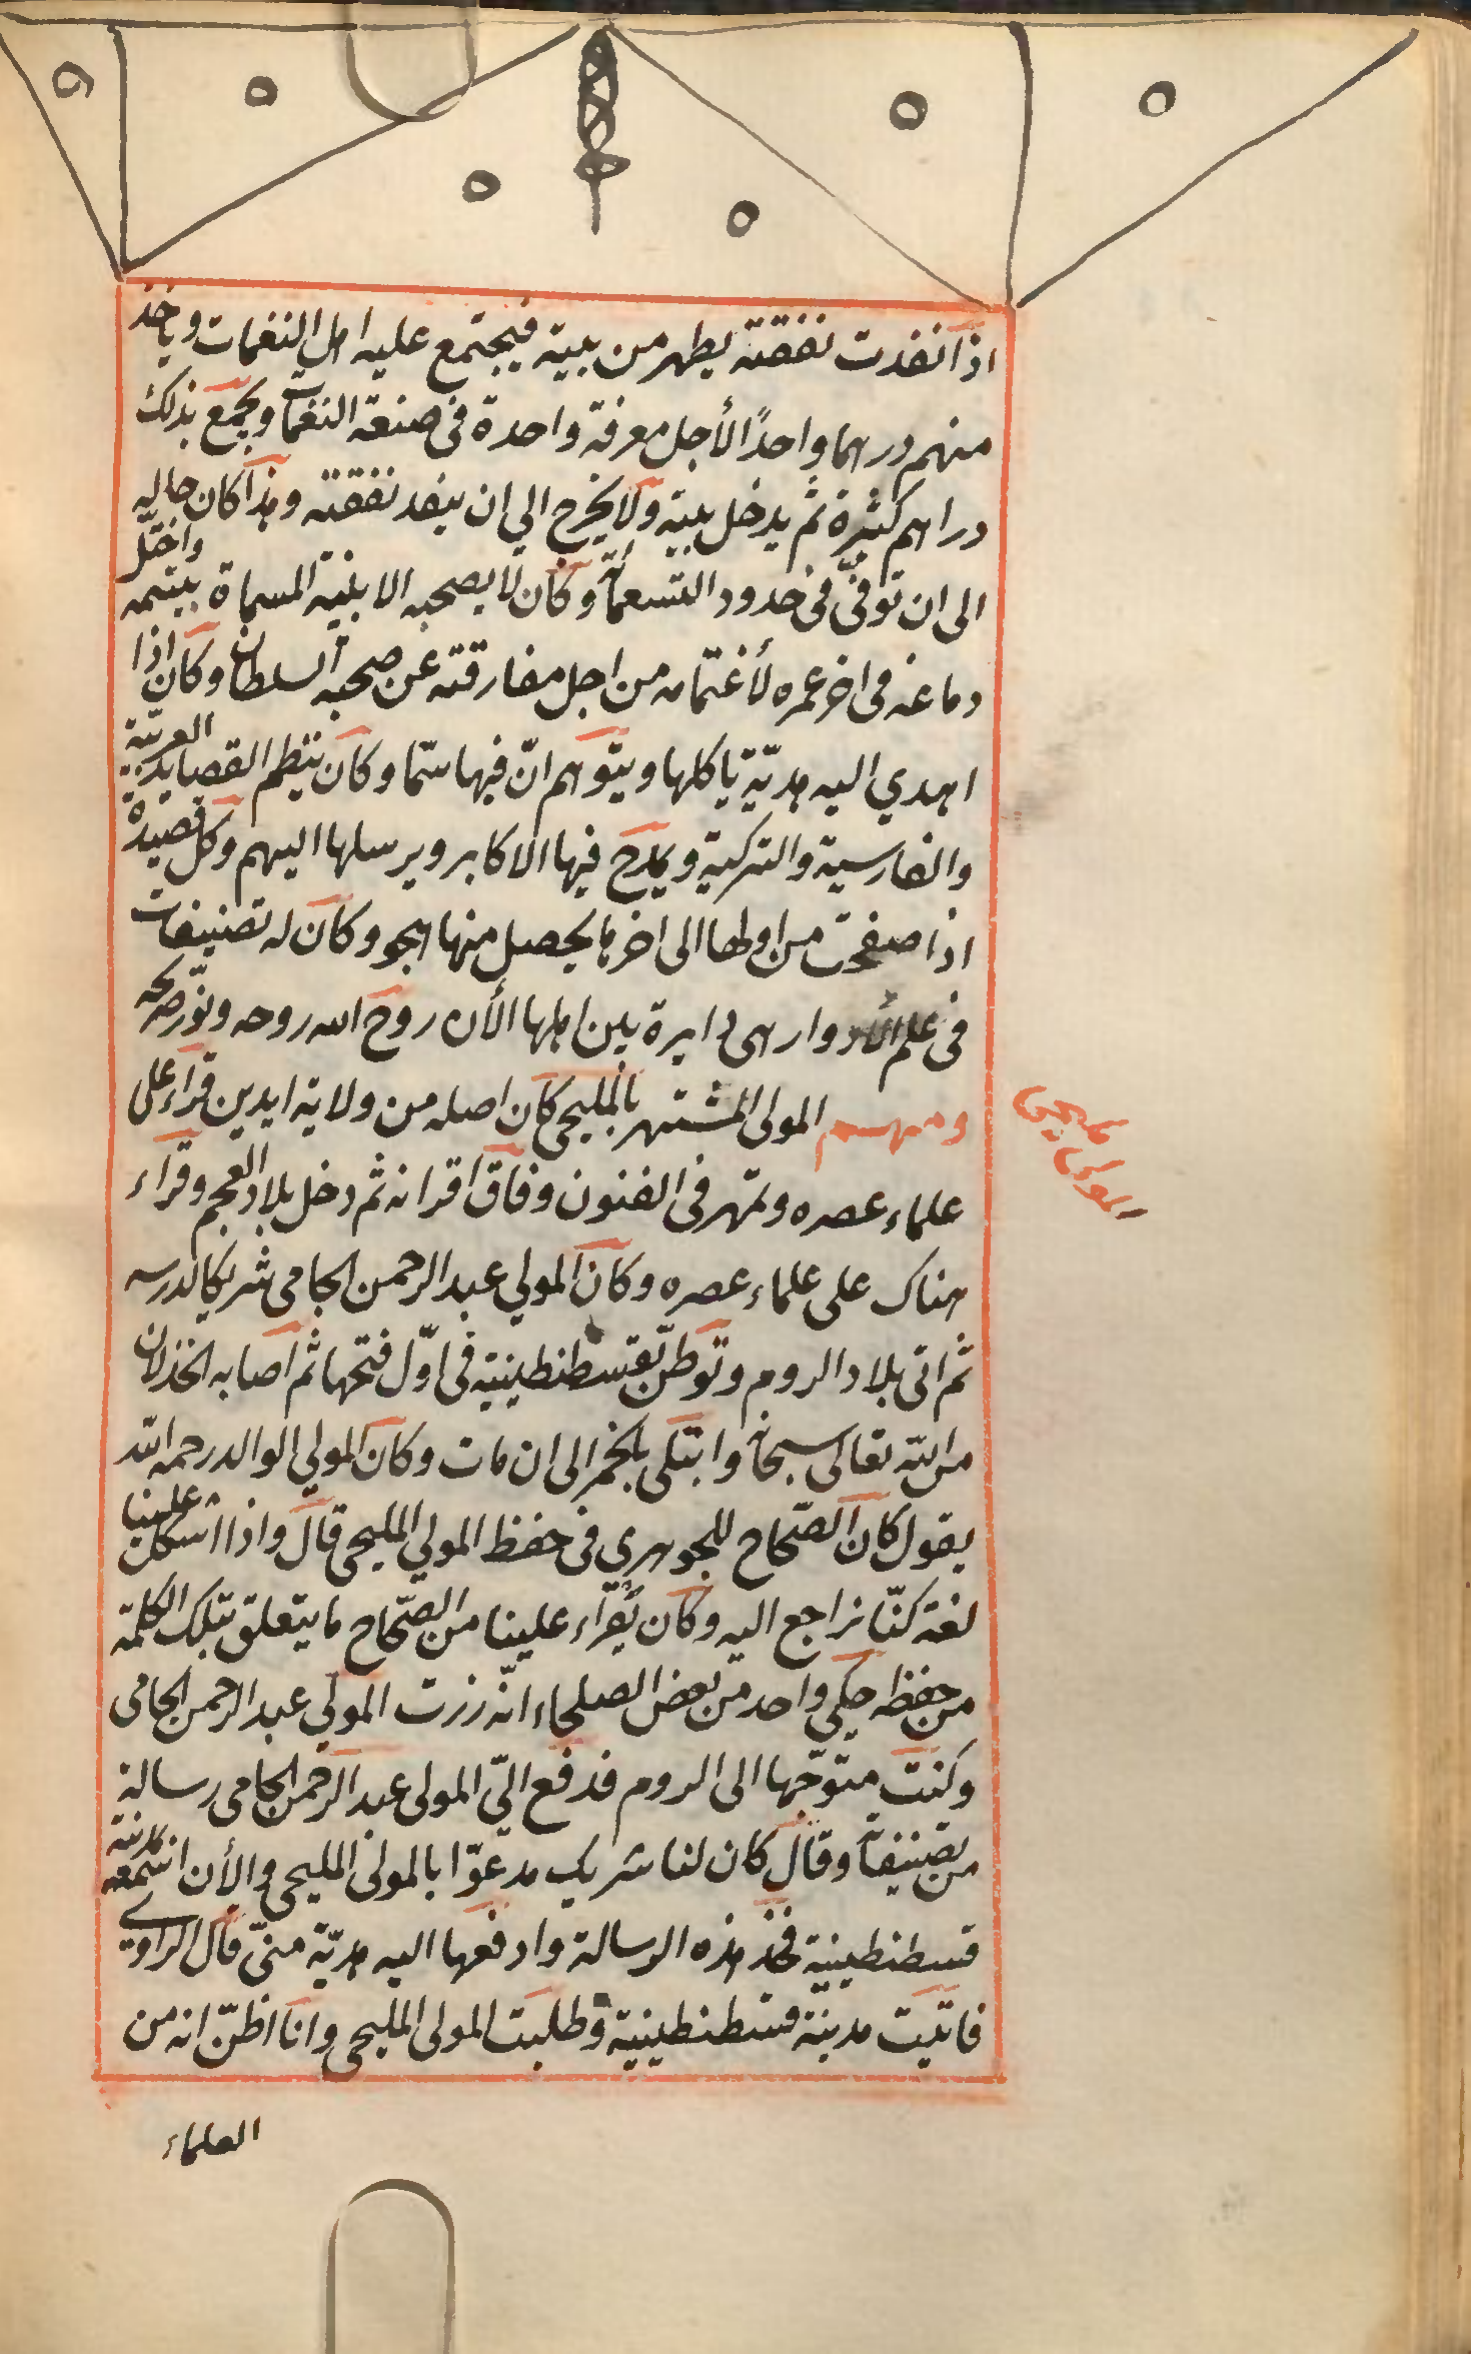 اذا نفدت نفقته يظهر من بيته فيجتمع عليه اهل النغمات وياخذ
منهم درهما واحدًا لأجل معرفة واحدة فى صنعة النغمات ويجمع بذلك
دراهم كثيرة ثم يدخل بيته ولا يخرج الي ان ينفد نفقته وهذا كان حاله
الى ان توفىّ فى حدود التسعمائة وكان لا يصحبه الا بنية المسماة بيتيمه واختلّ
دماغه فى اخر عمره لأغتمامه من اجل مفارقته عن صحبة السلطان وكان اذا
اهدي اليه هديّة ياكلها ويتوهم انّ فيها سمّا وكان ينظم القصايد العربيّة
والفارسية والتركية ويمدح فيها الاكابر ويرسلها اليهم وكل قصيدة
اذا صفحت من اولها الى اخرها يحصل منها هجو وكان له تصنيفات
فى علم الأدوار هى دايرة بين اهلها الأن روح الله روحه ونوّر ضريحه
ومنهم المولى المشتهر بالمليحى كان اصله من ولاية ايدين قراء على
علماء عصره وتمهر فى الفنون وفاق اقرانه ثم دخل بلاد العجم وقراء
هناك على علماء عصره وكان المولي عبد الرحمن الجامى شريكا لدرسه
ثم اتى بلاد الروم وتوطنّ بقسطنطينية فى اوّل فتحها ثم اصابه الخذلان
من الله تعالى سبحانه وابتلى بالخمر الى ان مات وكان المولي الوالد رحمه الله
يقول كان الصّحاح للجوهري فى حفظ المولي المليحى قال واذا اشكلت علينا
لغة كنّا نراجع اليه وكان يقراء علينا من الصّحاح ما يتعلق بتلك الكلمة
من حفظه حكي واحد من بعض الصلحاء انّه زرت المولي عبد الرحمن الجامى
وكنت متوّجها الى الروم فدفع اليّ المولى عبد الرحمن الجامى رسالة
من تصنيفاته وقال كان لنا شريك مدعوّا بالمولى المليحى والأن اسمعه بمدينة
قسطنطينية فخذ هذه الرسالة وادفعها اليه هديّة منىّ قال الراوي
فاتيت مدينة قسطنطينية وطلبت المولى المليحى وانا اظنّ انه من
العلماء
المولى مليحى